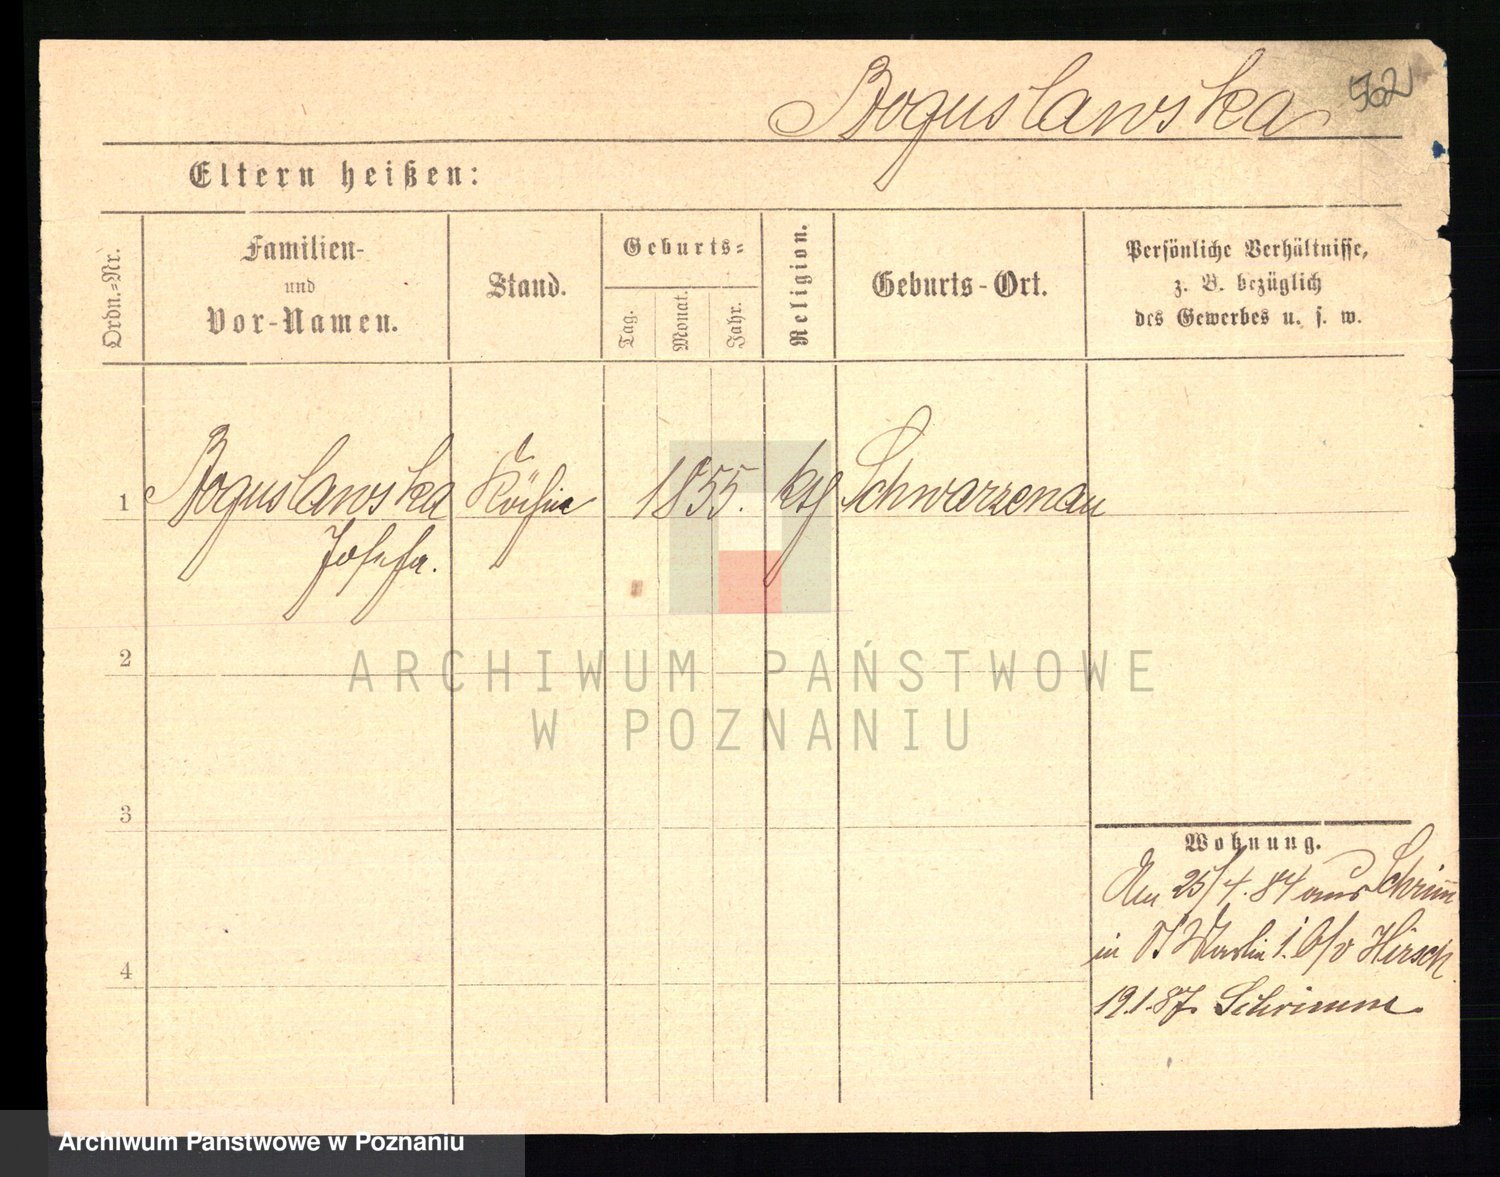 Boguslawska 562
Eltern heißen:
Ordn.=Nr.
Familien-
und
Vor-Namen.
Stand.
Geburts=
Tag.
Monat.
Jahr.
Religion.
Geburts-Ort.
Persönliche Verhältnisse,
z. B. bezüglich
des Gewerbes u. s. w.
1 Boguslawska Köchin 1855. kth Schwarzenau
Josefa.
2
ARCHIWUM PAŃSTWOWE
W POZNANIU
3
Wohnung.
Am 25/4.84 aus Schrim̄
in St Martin 1. b/v Hirsch
4
19.1.87. Schrimm.
Archiwum Państwowe w Poznaniu